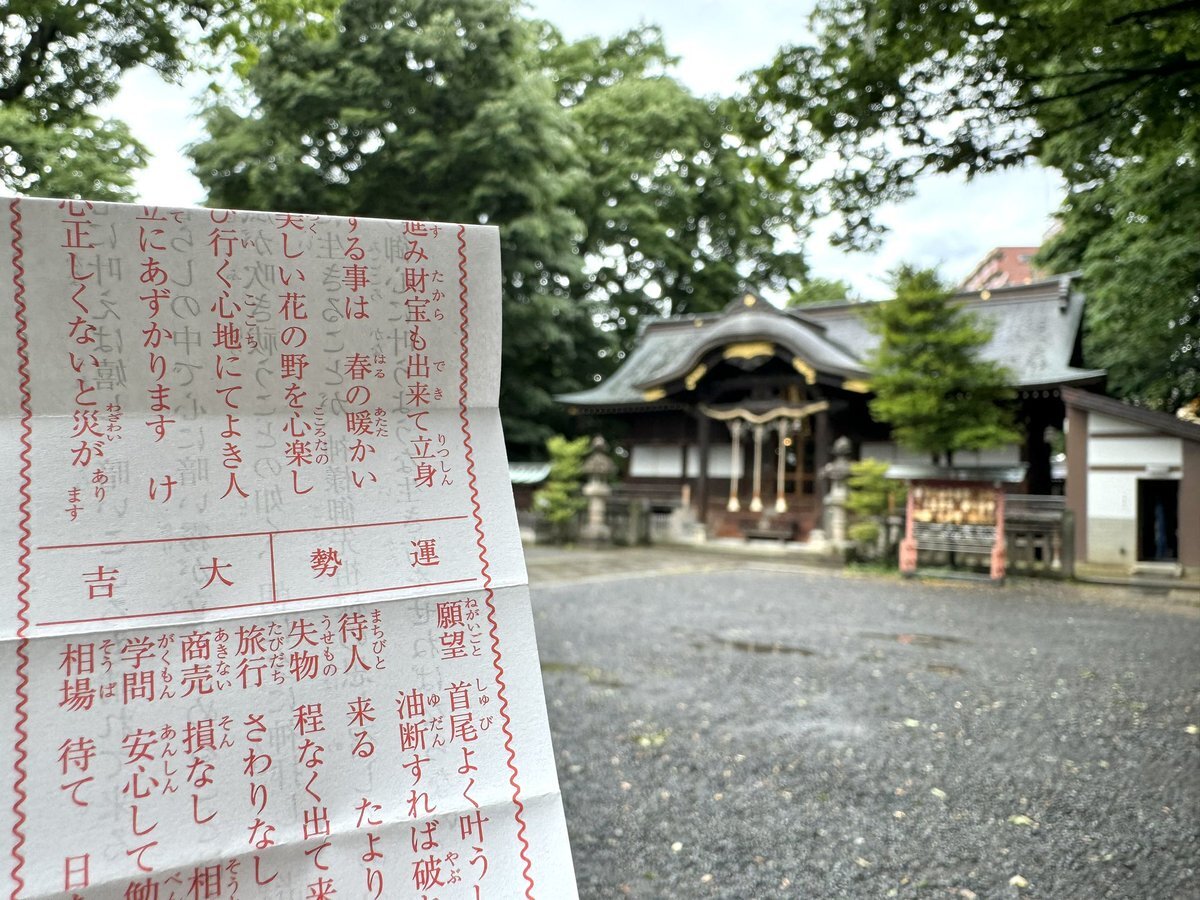 進み財宝も出来て立身
する事は 春の暖かい
美しい花の野を心楽し
び行く心地にてよき人
立にあずかります け
心正しくないと災があります
運勢 大吉
願望 首尾よく叶うし
油断すれば破
待人 来る たより
失物 程なく出て来
旅行 さわりなし
商売 損なし 相
学問 安心して勉
相場 待て 日